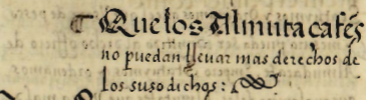 ¶ Que los Almutacafes
no puedan lleuar mas derechos de
los suso dichos: